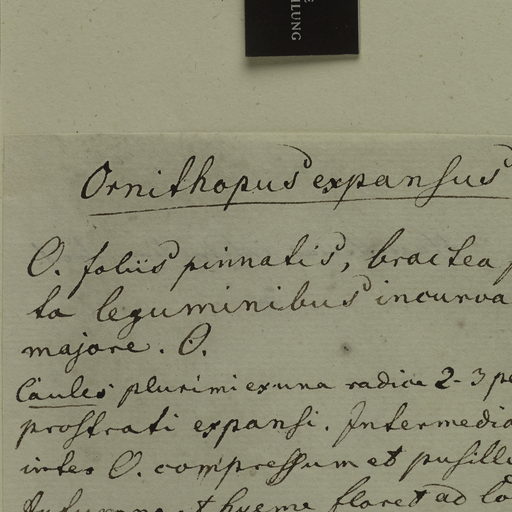 ILUNG
Ornithopus expansus
O. foliis pinnatis, bractea
ta leguminibus incurva
majore. O.
Caules plurimi ex una radice 2-3 pe
prostrati expansi. Intermedia
inter O. compressum et pusillu
et hyeme floret ad